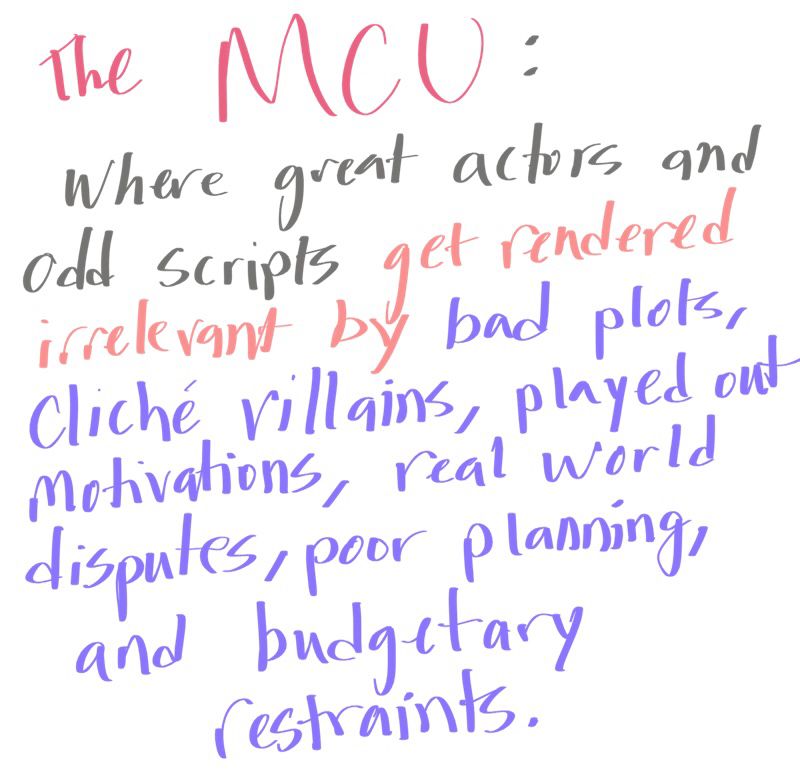 The MCU:
Where great actors and
odd scripts get rendered
irrelevant by bad plots,
Cliché villains, played out
motivations, real world
disputes, poor planning,
and budgetary
restraints.